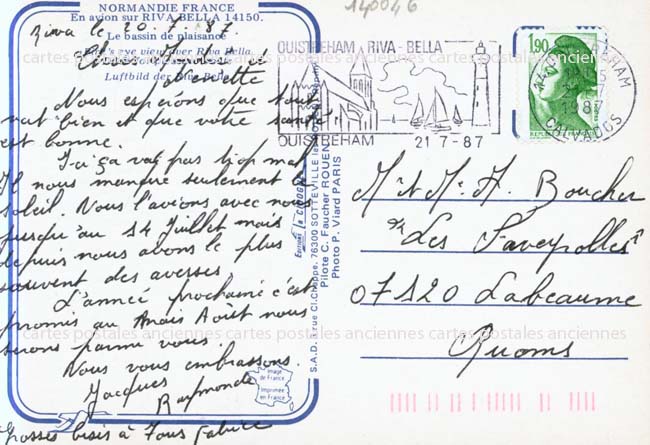 140046
NORMANDIE FRANCE
En avion sur RIVA BELLA 14150.
Le bassin de plaisance
Bird's eye view over Riva Bella.
Luftbild der
Riva le 20.7.87
Chers
Nous espérons que tout
va bien et que votre santé
est bonne.
Ici ça va pas trop mal
Il nous manque seulement le
soleil. Nous l'avions avec nous
jusqu'au 14 Juillet mais
depuis nous avons le plus
souvent des averses.
L'année prochaine c'est
promis au Août nous
serons parmi vous.
Nous vous embrassons.
Jacques Raymonde
Grosses bises à Tous Fabrice
Image de France
Imprimée en France
Editions La CIGOGNE
S.A.D. rue Cl. Chappe. 76300 SOTTEVILLE
Pilote C. Faucher ROUEN
Photo P. Viard PARIS
OUISTREHAM RIVA-BELLA
OUISTREHAM 21 7-87
1,90
1987
CALVADOS
Mr et Me A. Boucher
Les
07120 Labeaume
Ruoms
cartes postales anciennes cartes postales anciennes cartes postales anciennes